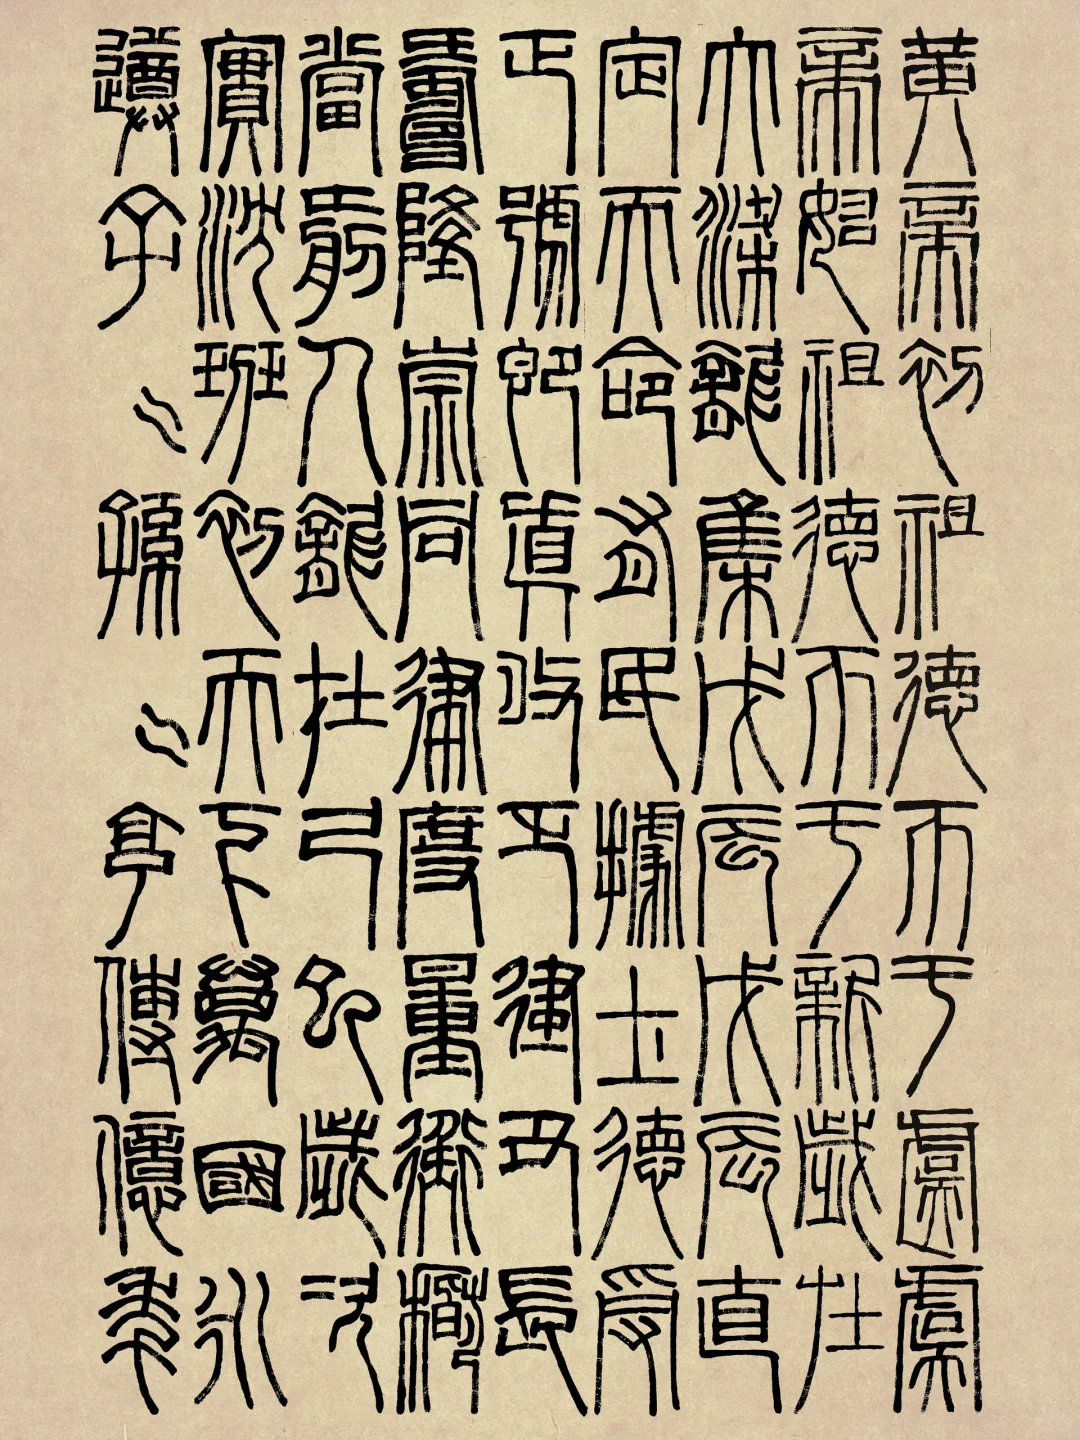 黃帝初祖德帀于虞虞
帝始祖德帀于新歲在
大梁龍集戊辰戊辰直
定天命有民據土德受
正號即真改正建丑長
壽隆崇同律度量衡稽
當前人龍在己巳歲次
實沈班初天下萬國永
遵子〻孫〻亨傳億年